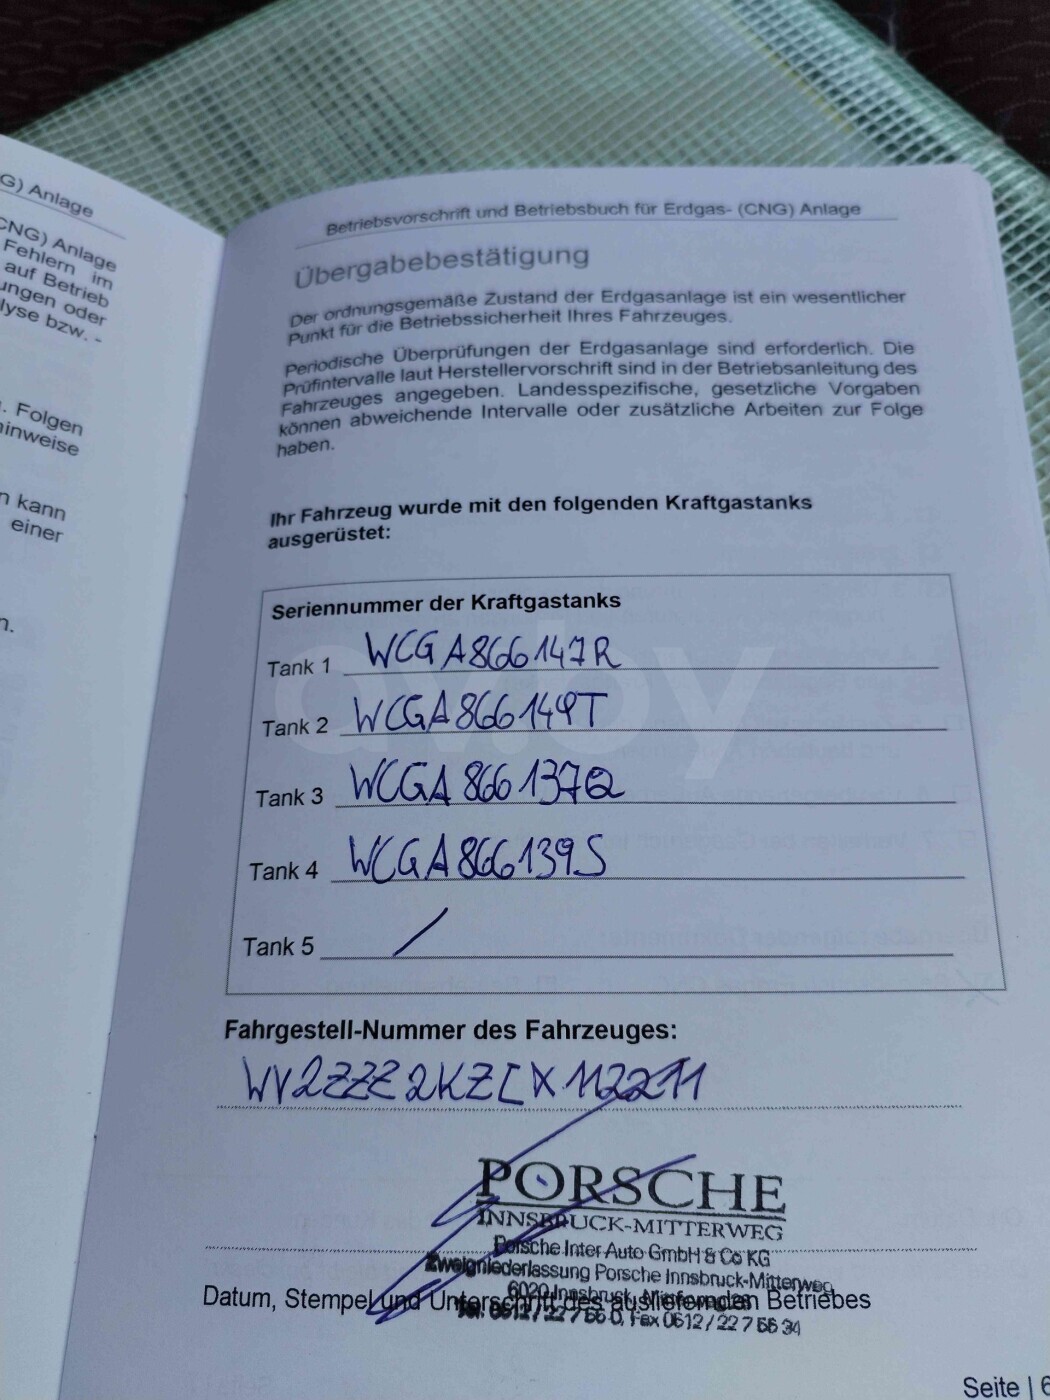 G) Anlage
CNG) Anlage
Fehlern im
auf Betrieb
ungen oder
lyse bzw. -
. Folgen
hinweise
n kann
einer
n.
Betriebsvorschrift und Betriebsbuch für Erdgas- (CNG) Anlage
Übergabebestätigung
Der ordnungsgemäße Zustand der Erdgasanlage ist ein wesentlicher
Punkt für die Betriebssicherheit Ihres Fahrzeuges.
Periodische Überprüfungen der Erdgasanlage sind erforderlich. Die
Prüfintervalle laut Herstellervorschrift sind in der Betriebsanleitung des
Fahrzeuges angegeben. Landesspezifische, gesetzliche Vorgaben
können abweichende Intervalle oder zusätzliche Arbeiten zur Folge
haben.
Ihr Fahrzeug wurde mit den folgenden Kraftgastanks
ausgerüstet:
Seriennummer der Kraftgastanks
Tank 1 WCGA866147R
Tank 2 WCGA866149T
Tank 3 WCGA866137Q
Tank 4 WCGA866139S
Tank 5 /
av.by
Fahrgestell-Nummer des Fahrzeuges:
WV2ZZZ2KZCX112211
PORSCHE
INNSBRUCK-MITTERWEG
Porsche Inter Auto GmbH & Co KG
Zweigniederlassung Porsche Innsbruck-Mitterweg
6020 Innsbruck, Mitterweg
Datum, Stempel und Unterschrift des ausliefernden Betriebes
Tel. 0512 / 22 7 55 0, Fax 0512 / 22 7 55 34
Seite | 6